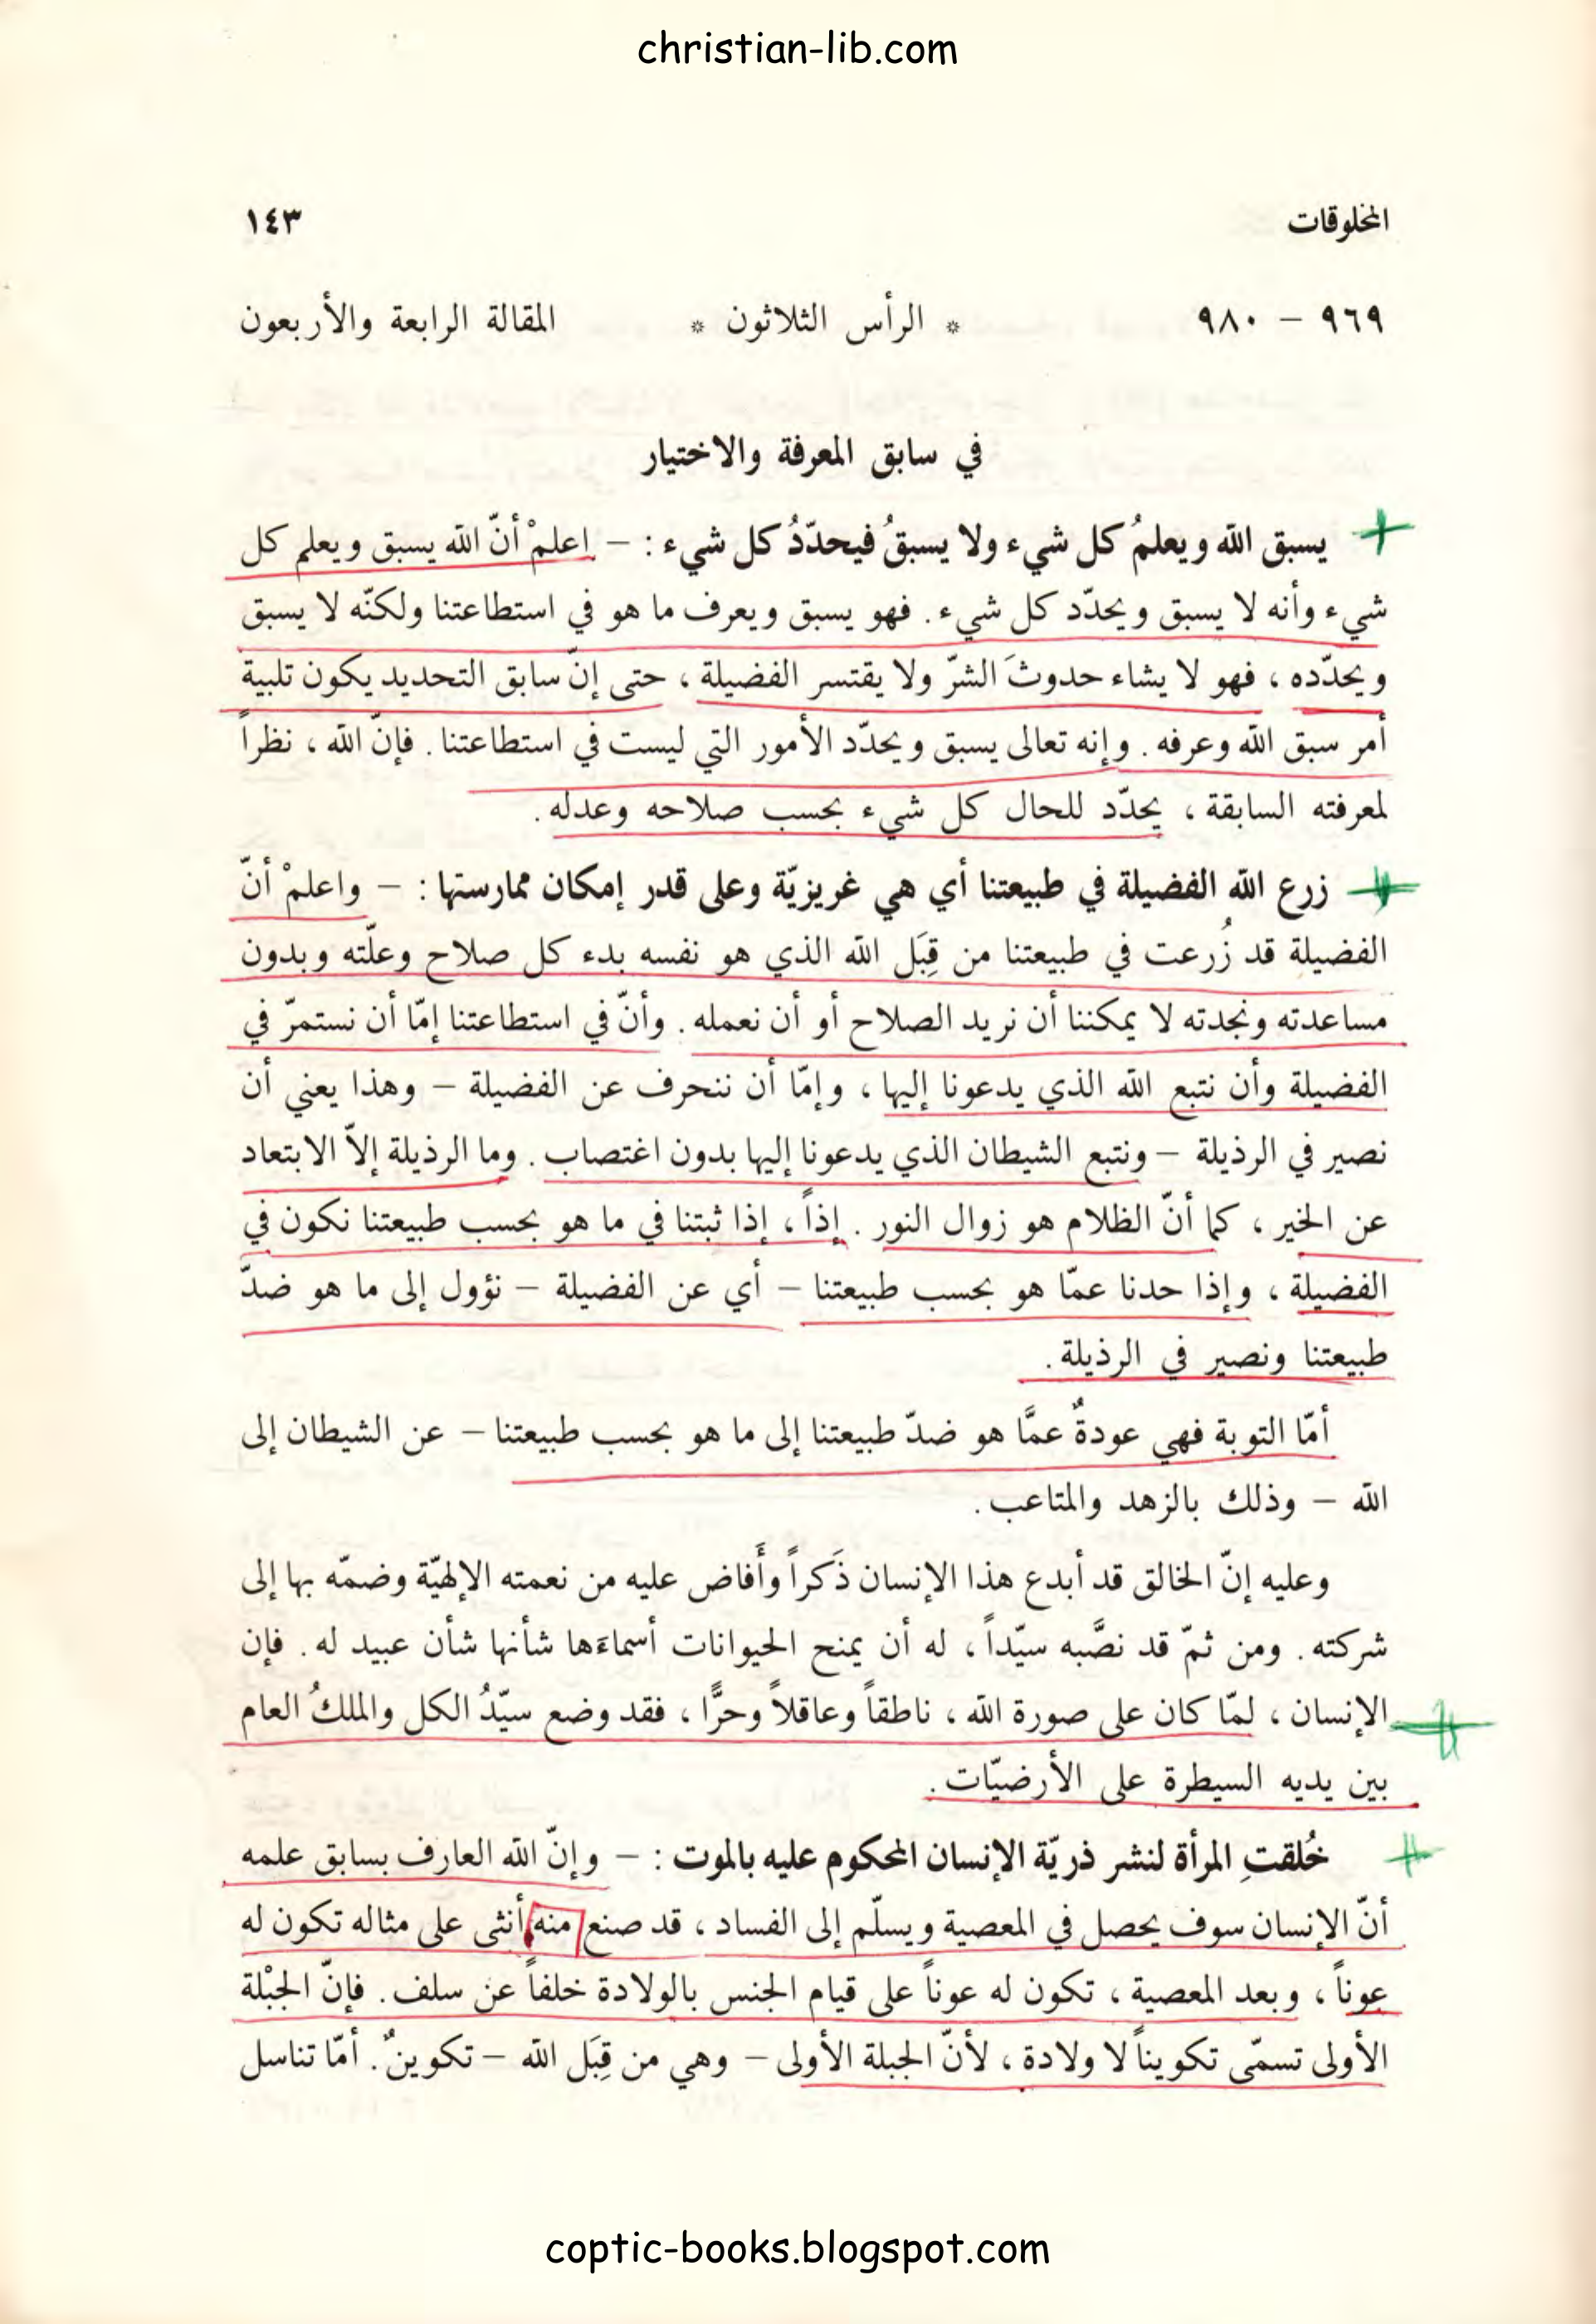 christian-lib.com
المخلوقات ١٤٣
٩٦٩ – ٩٨٠ * الرأس الثلاثون * المقالة الرابعة والأربعون
في سابق المعرفة والاختيار
يسبق الله ويعلمُ كل شيء ولا يسبقُ فيحدّدُ كل شيء : – اعلمْ أنّ الله يسبق ويعلم كل
شيء وأنه لا يسبق ويحدّد كل شيء . فهو يسبق ويعرف ما هو في استطاعتنا ولكنّه لا يسبق
ويحدّده ، فهو لا يشاء حدوثَ الشرّ ولا يقتسر الفضيلة ، حتى إنّ سابق التحديد يكون تلبية
أمر سبق الله وعرفه . وإنه تعالى يسبق ويحدّد الأمور التي ليست في استطاعتنا . فإنّ الله ، نظراً
لمعرفته السابقة ، يحدّد للحال كل شيء بحسب صلاحه وعدله .
زرع الله الفضيلة في طبيعتنا أي هي غريزيّة وعلى قدر إمكان ممارستها : – واعلمْ أنّ
الفضيلة قد زُرعت في طبيعتنا من قِبَل الله الذي هو نفسه بدء كل صلاح وعلّته وبدون
مساعدته ونجدته لا يمكننا أن نريد الصلاح أو أن نعمله . وأنّ في استطاعتنا إمّا أن نستمرّ في
الفضيلة وأن نتبع الله الذي يدعونا إليها ، وإمّا أن ننحرف عن الفضيلة – وهذا يعني أن
نصير في الرذيلة – ونتبع الشيطان الذي يدعونا إليها بدون اغتصاب . وما الرذيلة إلاّ الابتعاد
عن الخير ، كما أنّ الظلام هو زوال النور . إذاً ، إذا ثبتنا في ما هو بحسب طبيعتنا نكون في
الفضيلة ، وإذا حدنا عمّا هو بحسب طبيعتنا – أي عن الفضيلة – نؤول إلى ما هو ضدّ
طبيعتنا ونصير في الرذيلة .
أمّا التوبة فهي عودةٌ عمَّا هو ضدّ طبيعتنا إلى ما هو بحسب طبيعتنا – عن الشيطان إلى
الله – وذلك بالزهد والمتاعب .
وعليه إنّ الخالق قد أبدع هذا الإنسان ذَكراً وأَفاض عليه من نعمته الإلهيّة وضمّه بها إلى
شركته . ومن ثمّ قد نصَّبه سيّداً ، له أن يمنح الحيوانات أسماءَها شأنها شأن عبيد له . فإن
الإنسان ، لمّا كان على صورة الله ، ناطقاً وعاقلاً وحرًّا ، فقد وضع سيّدُ الكل والملكُ العام
بين يديه السيطرة على الأرضيّات .
خُلقتِ المرأة لنشر ذريّة الإنسان المحكوم عليه بالموت : – وإنّ الله العارف بسابق علمه
أنّ الإنسان سوف يحصل في المعصية ويسلّم إلى الفساد ، قد صنع منه أنثى على مثاله تكون له
عوناً ، وبعد المعصية ، تكون له عوناً على قيام الجنس بالولادة خلفاً عن سلف . فإنّ الجبْلة
الأولى تسمّى تكويناً لا ولادة ، لأنّ الجبلة الأولى – وهي من قِبَل الله – تكوينٌ . أمّا تناسل
coptic-books.blogspot.com